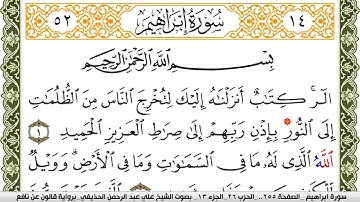 ١٤ سُورَةُ إِبْرَاهِيم ٥٢
بِسْمِ ٱللَّهِ ٱلرَّحْمَٰنِ ٱلرَّحِيمِ
الٓر۟ كِتَٰبٌ أَنزَلْنَٰهُ إِلَيْكَ لِتُخْرِجَ ٱلنَّاسَ مِنَ ٱلظُّلُمَٰتِ
إِلَى ٱلنُّورِ بِإِذْنِ رَبِّهِمْ إِلَىٰ صِرَٰطِ ٱلْعَزِيزِ ٱلْحَمِيدِ ١
ٱللَّهُ ٱلَّذِى لَهُۥ مَا فِى ٱلسَّمَٰوَٰتِ وَمَا فِى ٱلْأَرْضِ وَوَيْلٌ
سورة إبراهيم _ الصفحة ٢٥٥.. الحزب ٢٦ _ الجزء ١٣ _ بصوت الشيخ علي عبد الرحمن الحذيفي _ برواية قالون عن نافع